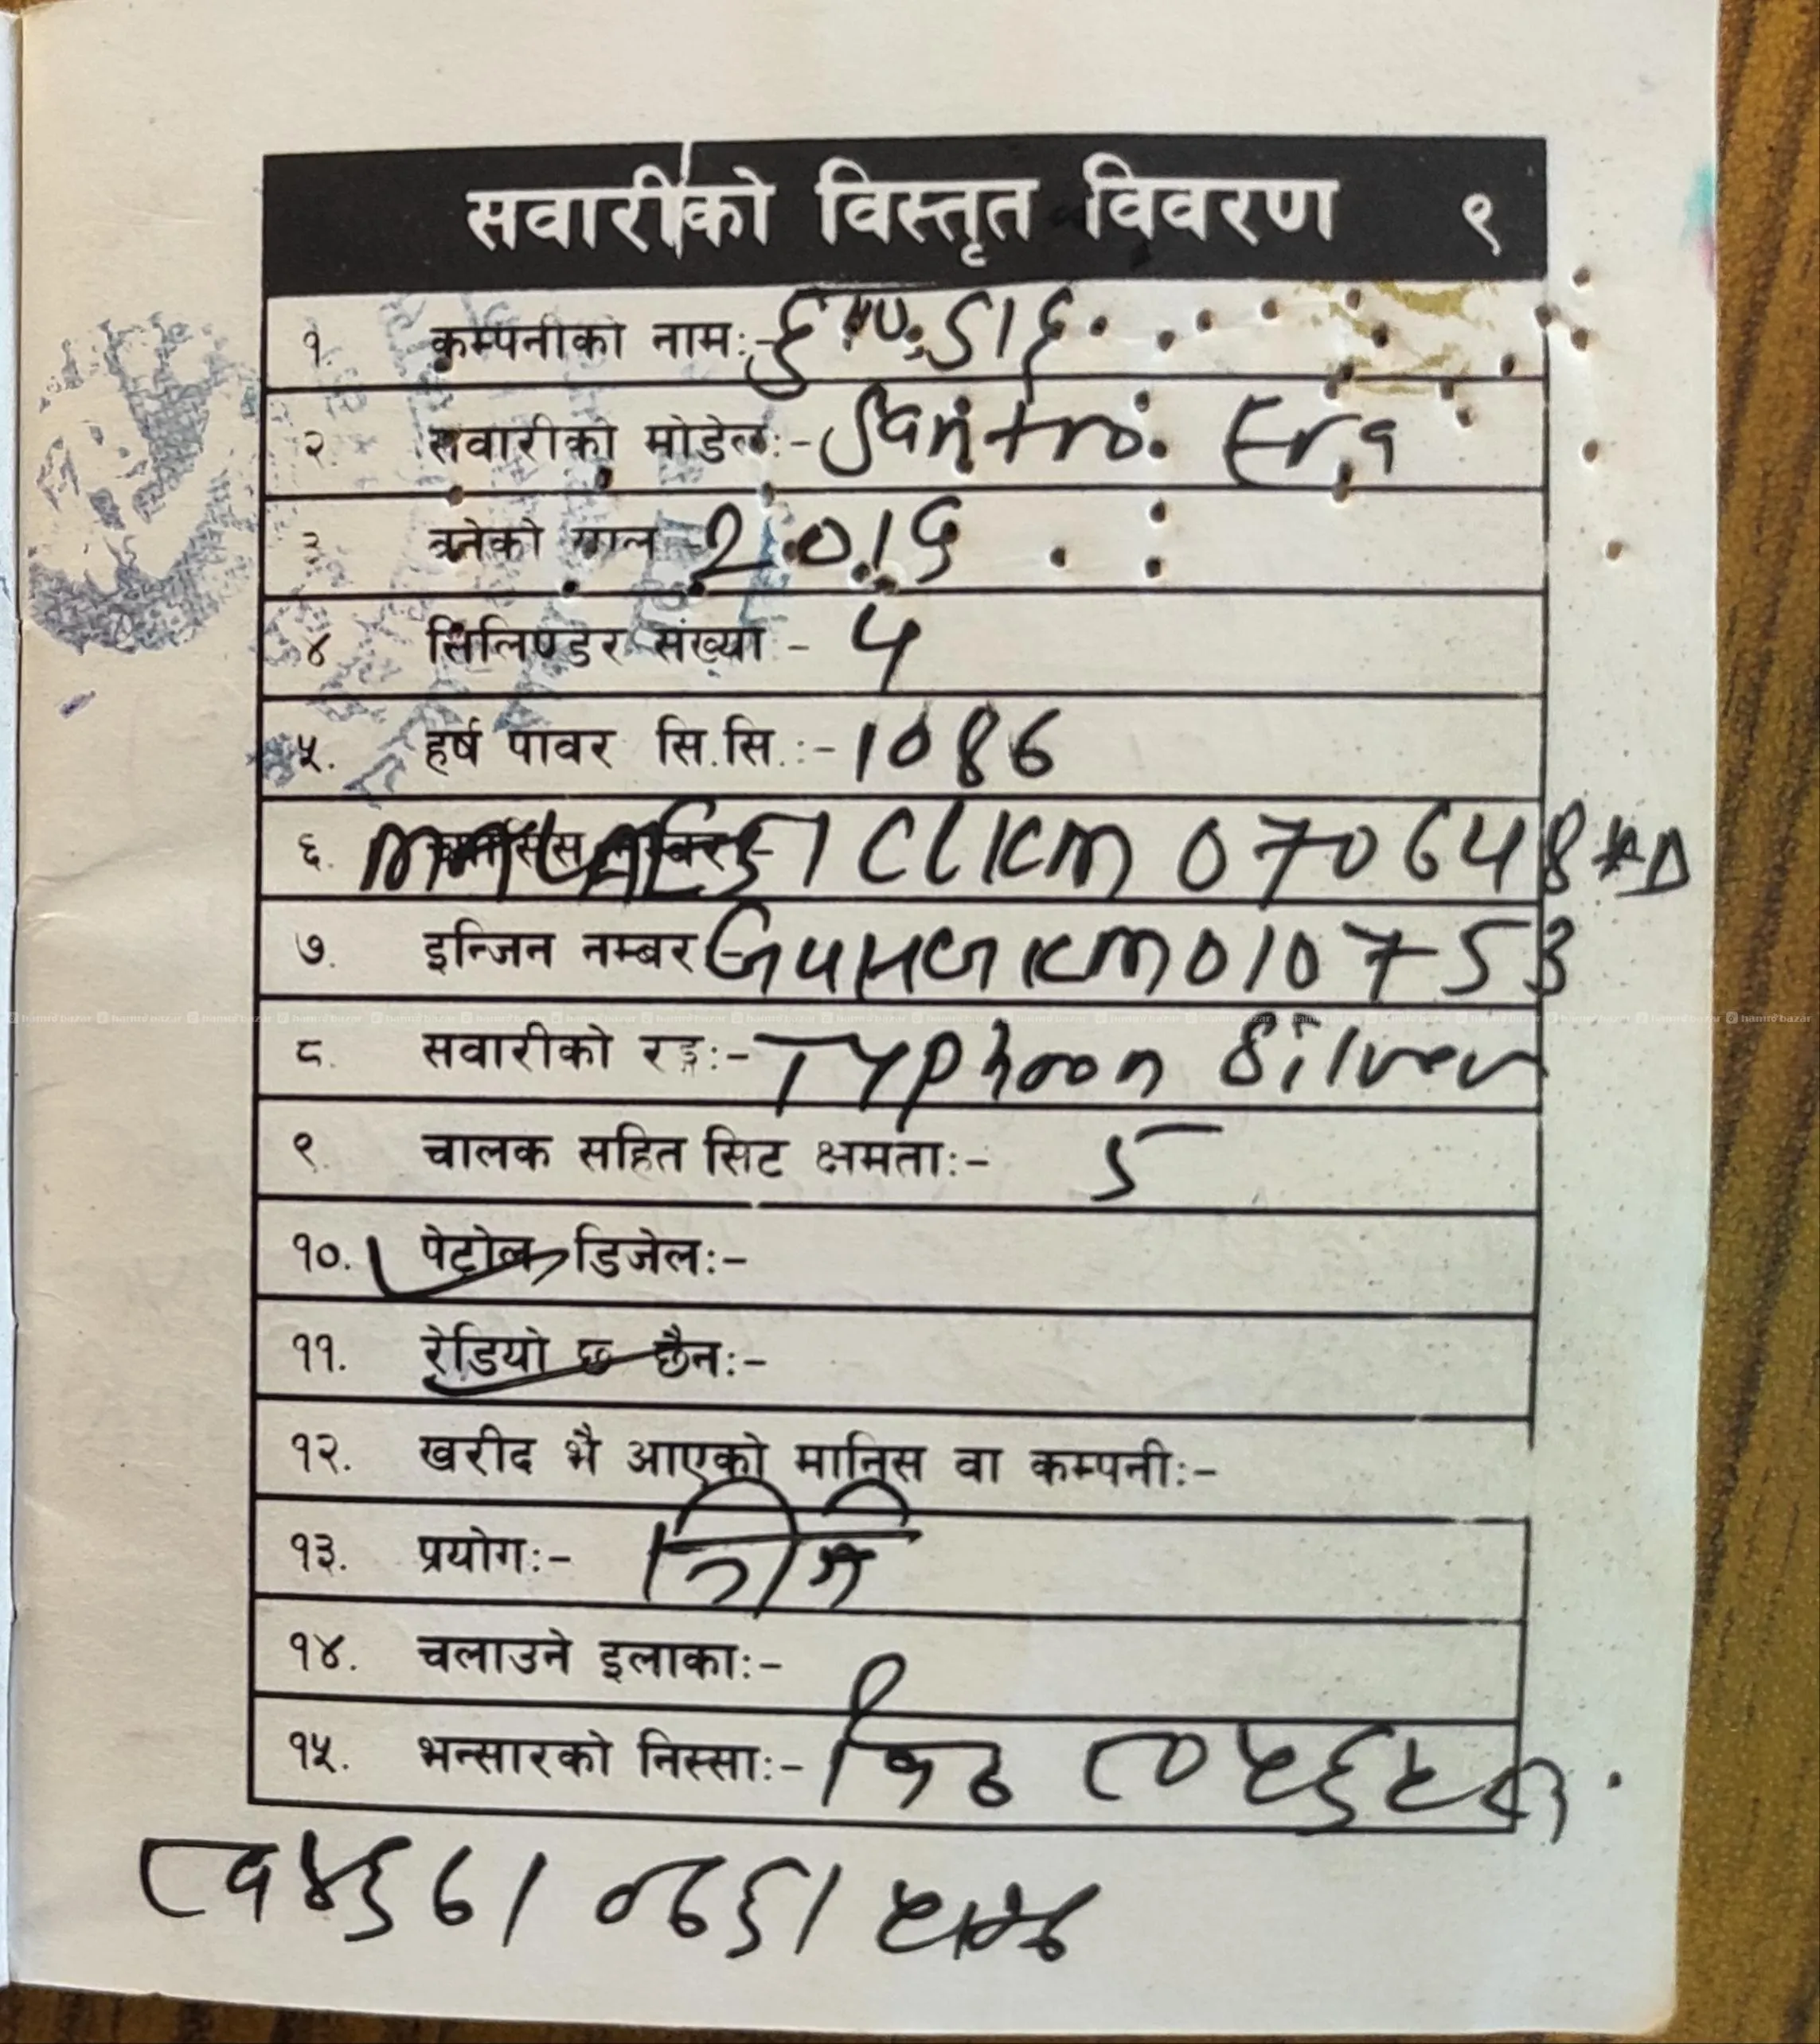 सवारीको विस्तृत विवरण ९
१ कम्पनीको नाम:- हुण्डाई
२ सवारीको मोडेल:- Santro Era
३ बनेको साल - 2019
४ सिलिण्डर संख्या - 4
५. हर्ष पावर सि.सि.:- 1086
६. CLKM070648*D
७. इन्जिन नम्बर G4HGKM010753
८. सवारीको रङ्ग:- Typhoon Silver
९. चालक सहित सिट क्षमता:- 5
१०. पेट्रोल डिजेल:-
११. रेडियो छ छैन:-
१२. खरीद भै आएको मानिस वा कम्पनी:-
१३. प्रयोग:- निजि
१४. चलाउने इलाका:-
१५. भन्सारको निस्सा:-
hamro bazar